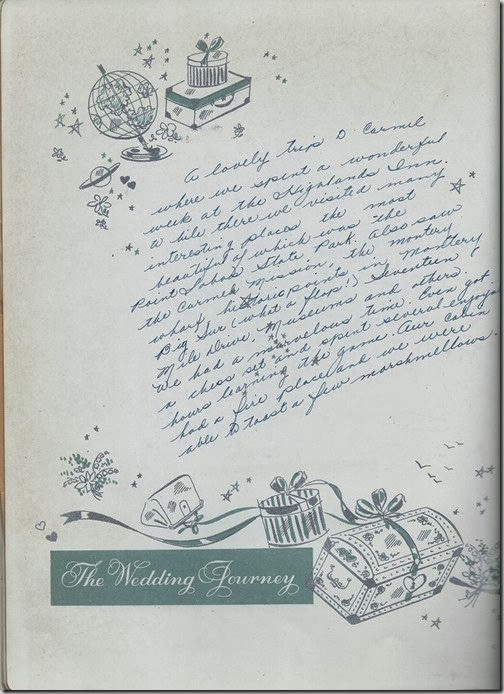 A lovely trip to Carmel
where we spent a wonderful
week at the Highlands Inn.
A hile there we visited many
interesting places the most
beautiful of which was "the
Point Lobos State Park. Also saw
the Carmel Mission, the montery
wharf, historic points in Montery
Big Sur (what a flop!) Seventeen
Mile Drive, Museums and others.
We had a marvelous time. Even got
a chess set and spent several enjoya
hours learning the game. Our cabin
had a fire place and we were
able to toast a few marshmellows.
The Wedding Journey